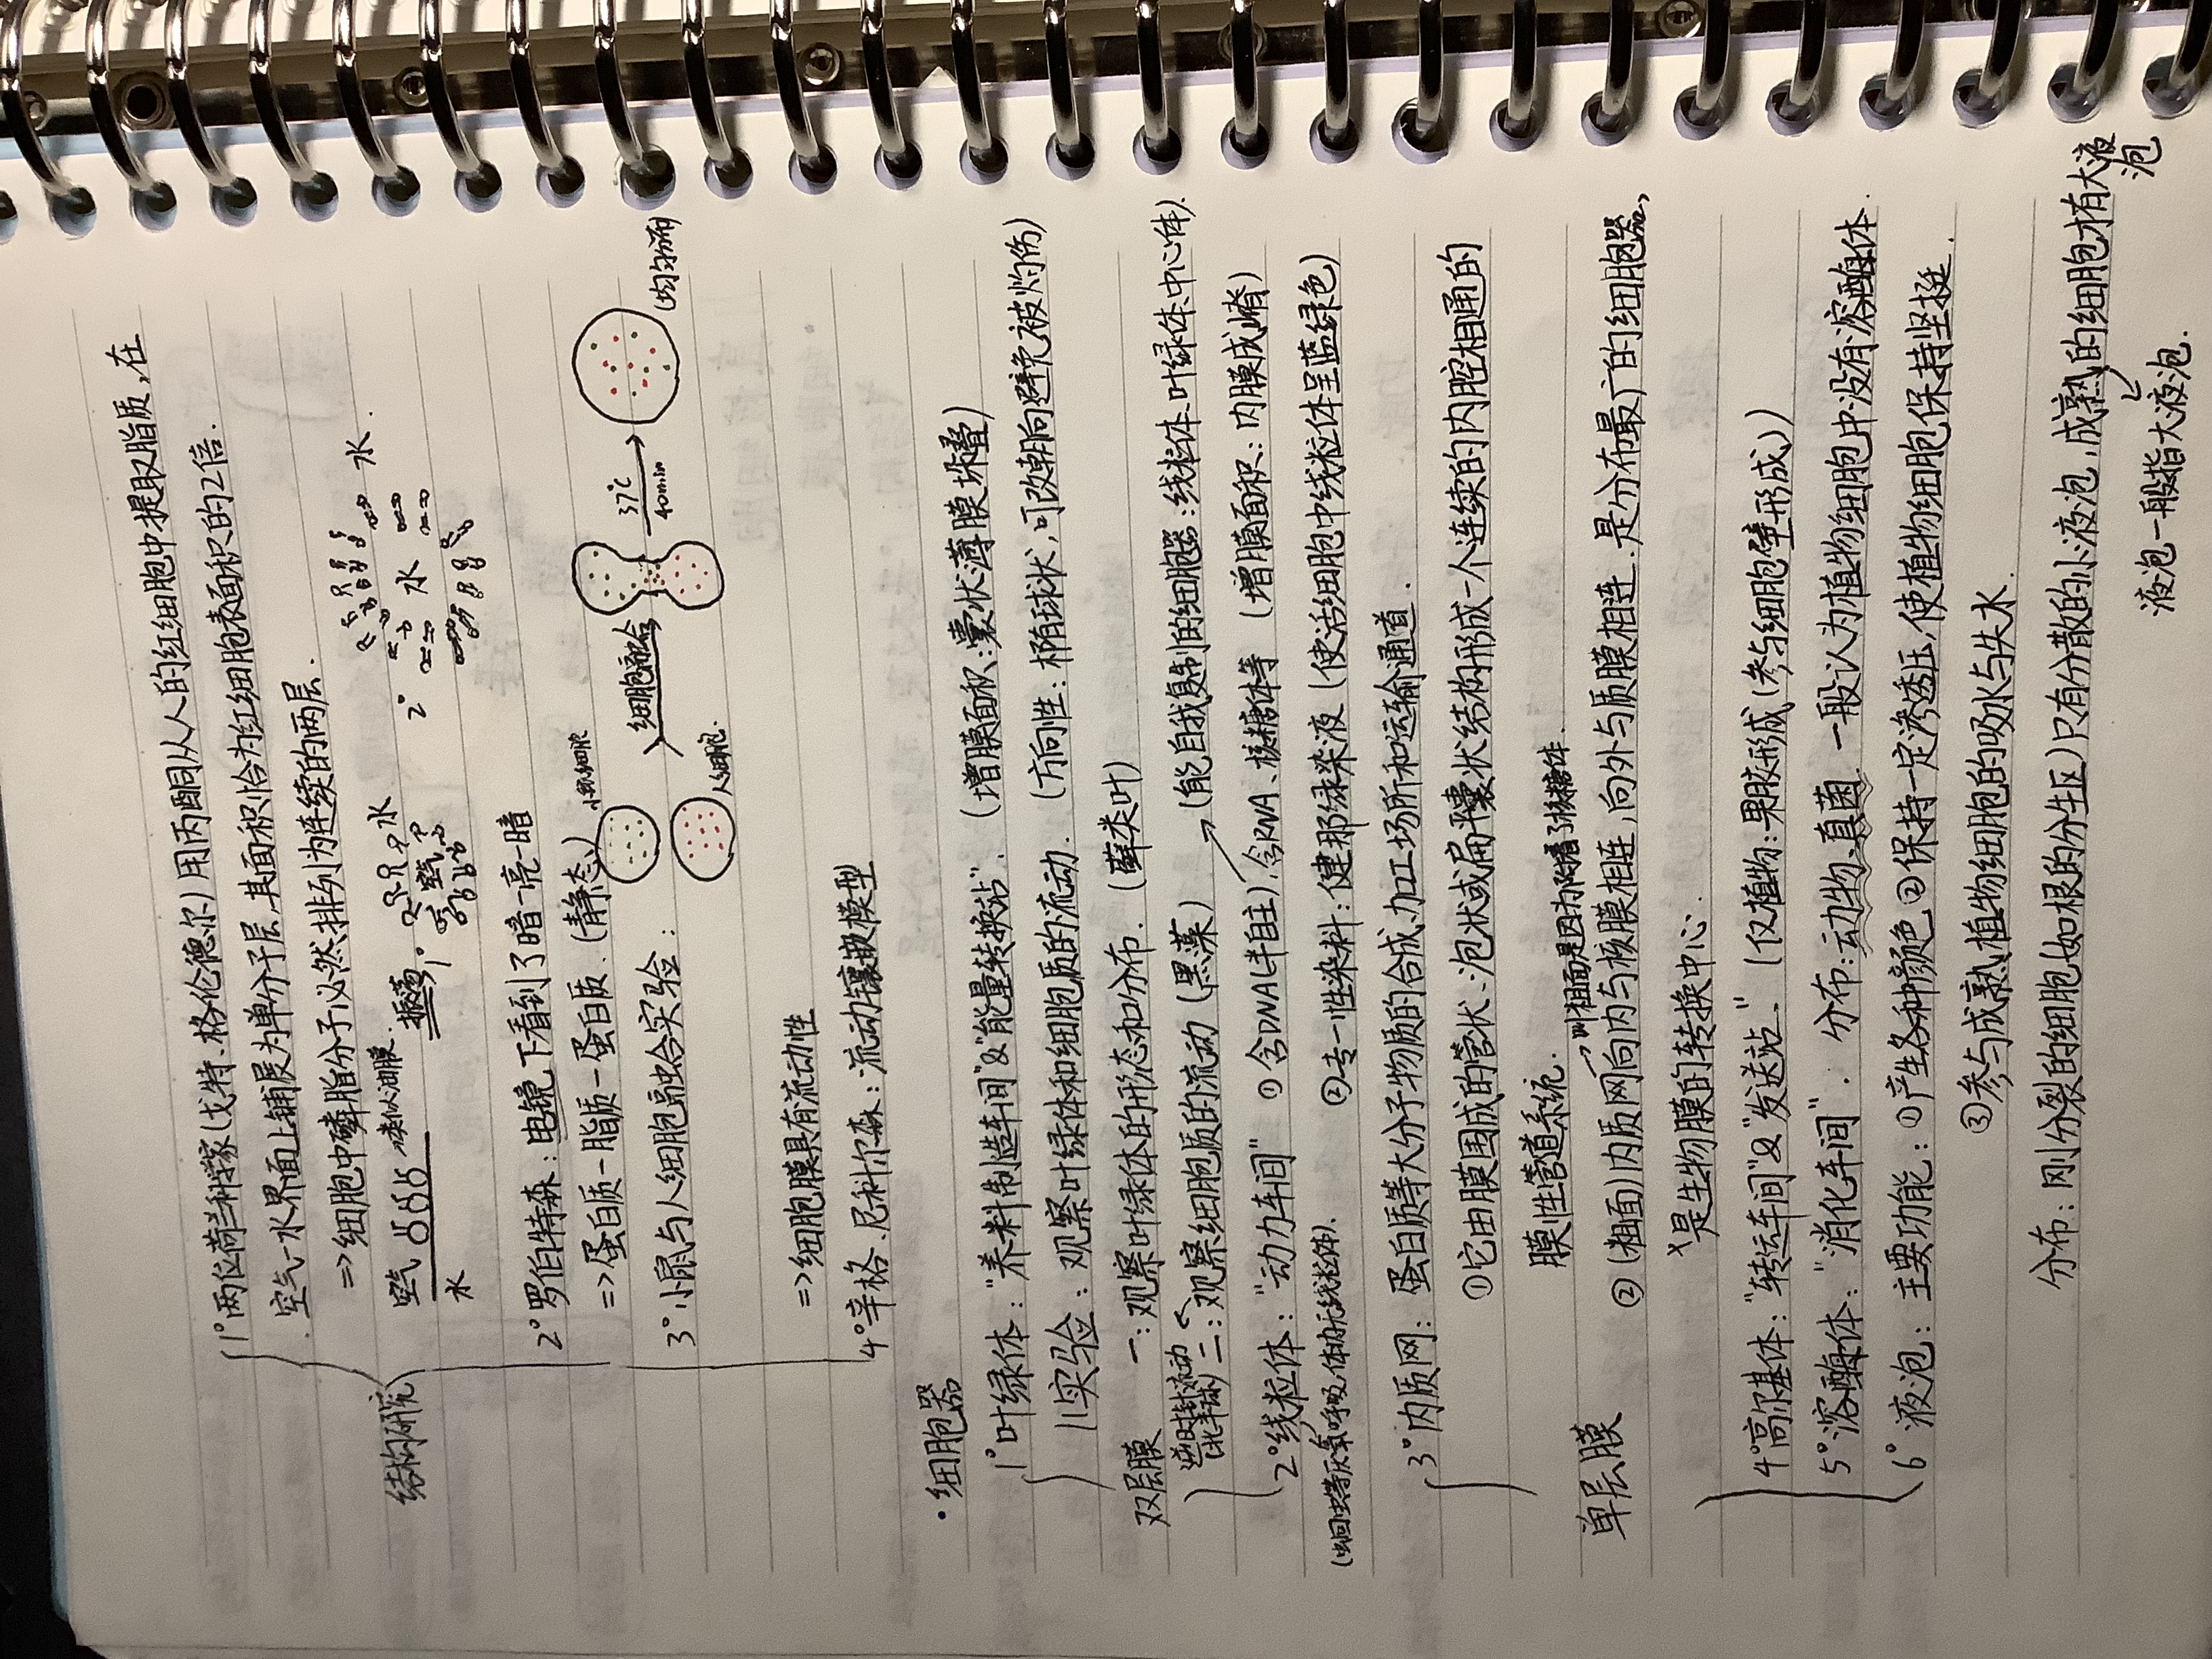 结构研究
1°两位荷兰科学家(戈特、格伦德尔)用丙酮从人的红细胞中提取脂质,在
空气-水界面上铺展为单分子层,其面积恰为红细胞表面积的2倍.
=>细胞中磷脂分子必然排列为连续的两层.
空气 类似油膜. 振荡 1° 水 2° 水.
水 空气 水
2°罗伯特森:电镜下看到了暗-亮-暗
=>蛋白质-脂质-蛋白质.(静态)
小鼠细胞
3°小鼠与人细胞融合实验: 细胞融合 37℃ 40min (均匀分布)
人细胞
=>细胞膜具有流动性
4°辛格、尼科尔森:流动镶嵌模型
·细胞器
双层膜
1°叶绿体:"养料制造车间"&"能量转换站". (增膜面积:囊状薄膜垛叠)
实验:观察叶绿体和细胞质的流动. (方向性:椭球状,可改朝向避免被灼伤)
一:观察叶绿体的形态和分布.(藓类叶)
二:观察细胞质的流动(黑藻) (能自我复制的细胞器:线粒体、叶绿体、中心体).
逆时针流动
2°线粒体:"动力车间" ①含DNA(半自主),含RNA、核糖体等 (增膜面积:内膜成嵴)
(蛔虫等厌氧呼吸,体内无线粒体). ②专一性染料:健那绿染液(使活细胞中线粒体呈蓝绿色)
单层膜
3°内质网:蛋白质等大分子物质的合成、加工场所和运输通道.
①它由膜围成的管状、泡状或扁平囊状结构形成一个连续的内腔相通的
膜性管道系统. 叫粗面是因为附着了核糖体.
②(粗面)内质网向内与核膜相连,向外与质膜相连.是分布最广的细胞器,
是生物膜的转换中心.
4°高尔基体:"转运车间"&"发送站." (仅植物:果胶形成(参与细胞壁形成))
5°溶酶体:"消化车间". 分布:动物、真菌. 一般认为植物细胞中没有溶酶体.
6°液泡:主要功能:①产生各种颜色②保持一定渗透压,使植物细胞保持坚挺.
③参与成熟植物细胞的吸水与失水.
分布:刚分裂的细胞(如根的分生区)只有分散的小液泡,成熟的细胞有大液泡
液泡一般指大液泡.